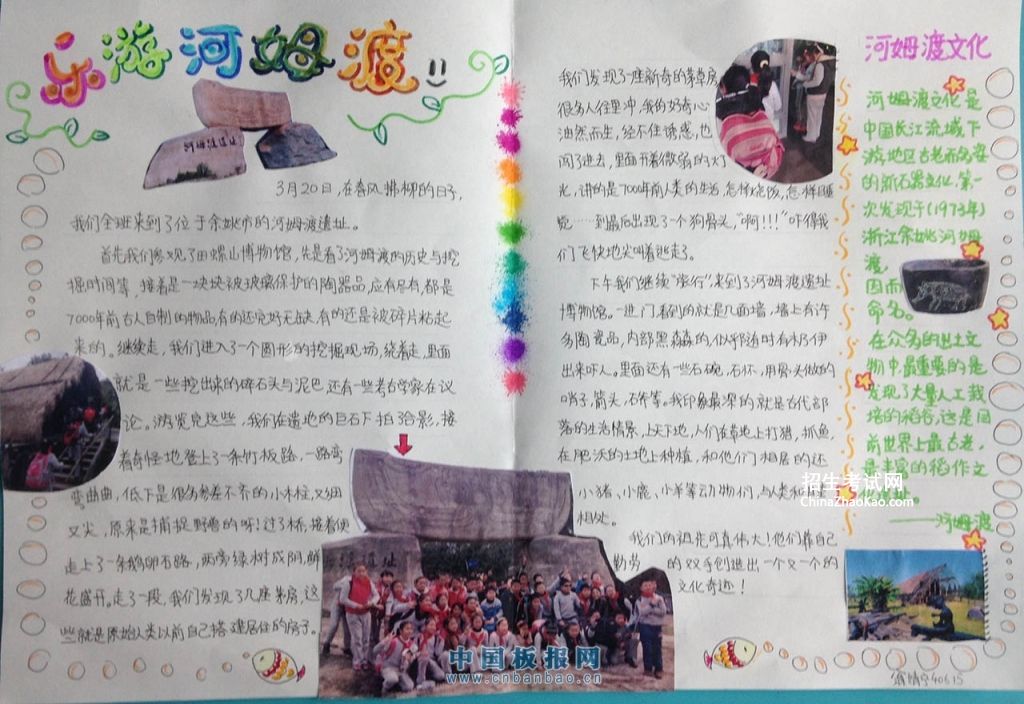 乐游河姆渡
河姆渡遗址
3月20日,在春风拂柳的日子,
我们全班来到了位于余姚市的河姆渡遗址。
首先我们参观了田螺山博物馆,先是看了河姆渡的历史与挖
掘时间等,接着是一块块被玻璃保护的陶器品,应有尽有,都是
7000年前古人自制的物品有的还完好无缺,有的还是被碎片粘起
来的。继续走,我们进入了一个圆形的挖掘现场,绕着走,里面
就是一些挖出来的碎石头与泥巴,还有一些考古学家在议
论。游览完这些,我们在遗地的巨石下拍了合影,接
着奇怪地登上了一条竹板路,一路弯
弯曲曲,低下是很多参差不齐的小木桩,又细
又尖,原来是捕捉野兽的呀!过了桥,接着便
走上了一条鹅卵石路,两旁绿树成阴,鲜
花盛开。走了一段,我们发现了几座茅房,这
些就是原始人类以前自己搭建居住的房子。
我们发现了一座新奇的茅草房
很多人往里冲,我的好奇心
油然而生,经不住诱惑,也
闯了进去,里面开着微弱的灯
光,讲的是7000年前人类的生活,怎样烧饭,怎样睡
觉……到最后出现了个狗骨头,“啊!!!”吓得我
们飞快地尖叫着逃走了。
下午我们继续“旅行”,来到了河姆渡遗址
博物馆。一进门,看到的就是几面墙,墙上有许
多陶瓷品,内部黑森森的,似乎随时有木乃伊
出来吓人。里面还有一些石碗,石杯,用骨头做的
哨子,箭头,石斧等。我印象最深的就是古代部
落的生活情景,上天下地,人们在草地上打猎,抓鱼,
在肥沃的土地上种植,和他们相居的还
小猪、小鹿、小羊等动物们,与人类和
相处。
我们的祖先可真伟大!他们靠自己
勤劳的双手创造出一个又一个的
文化奇迹!
遗址
河姆渡文化
河姆渡文化是
中国长江流域下
游地区古老而多姿
的新石器文化,第一
次发现于(1973年)
浙江余姚河姆
渡,
因而
命名。
在众多的出土文
物中,最重要的是
发现了大量人工栽
培的稻谷,这是目
前世界上最古老,
最丰富的稻作文
——河姆渡
40615
招生考试网
ChinaZhaoKao.com
中国板报网
www.cnbanbao.cn